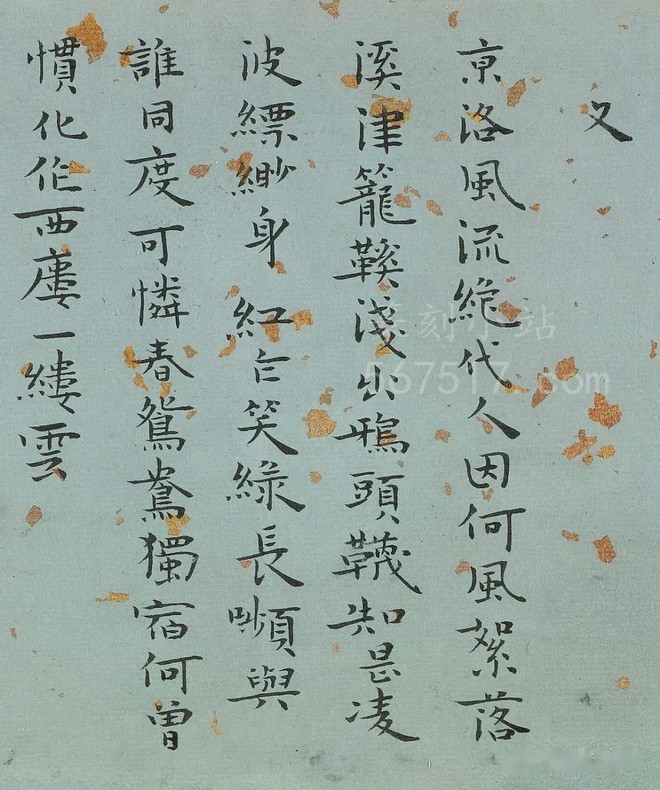 又
亰洛風流絶代人因何風絮落
溪津籠鞵淺出鴉頭韈知是凌
波縹緲身紅乍笑綠長嚬與
誰同度可憐春鴛鴦獨宿何曾
慣化作西廔一縷雲
篆刻小站
567517.com